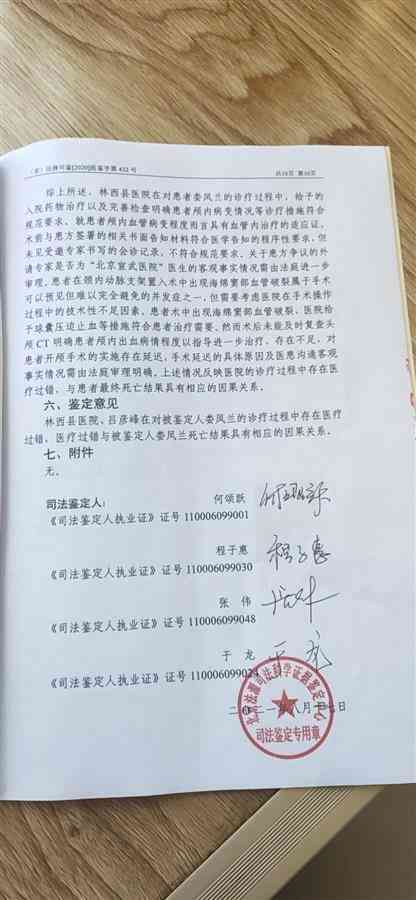 综上所述，林西县医院在对患者娄凤兰的诊疗过程中，给予的
入院药物治疗以及完善检查明确患者颅内病变情况等诊疗措施符合
规范要求、就患者颅内血管病变程度而言具有血管内治疗的适应证、
术前与患方签署的相关书面告知材料符合医学告知的程序性要求，但
未见受邀专家书写的会诊记录，不符合规范要求。关于患方争议的外
请专家是否为“北京宣武医院”医生的客观事实情况需由法庭进一步
审理。患者在颈内动脉支架置入术中出现海绵窦部血管破裂属于手术
可以预见但难以完全避免的并发症之一，但需要考虑医院在手术操作
过程中的技术性不足因素。患者术中出现海绵窦部血管破裂，医院给
予球囊压迫止血等措施符合患者治疗需要，然而术后未能及时复查头
颅CT明确患者颅内出血病情程度以指导进一步治疗，存在不足，对
患者开颅手术的实施存在延迟，手术延迟的具体原因及医患沟通客观
事实情况需由法庭审理明确。上述情况反映医院的诊疗过程中存在医
疗过错，与患者最终死亡结果具有相应的因果关系。
六、鉴定意见
林西县医院、吕彦峰在对被鉴定人娄凤兰的诊疗过程中存在医疗
过错，医疗过错与被鉴定人娄凤兰死亡结果具有相应的因果关系。
七、附件
无。
司法鉴定人： 何颂跃
《司法鉴定人执业证》证号110006099001
程子惠
《司法鉴定人执业证》证号110006099030
张 伟
《司法鉴定人执业证》证号110006099048
于 龙
《司法鉴定人执业证》证号110006099024
司法鉴定专用章